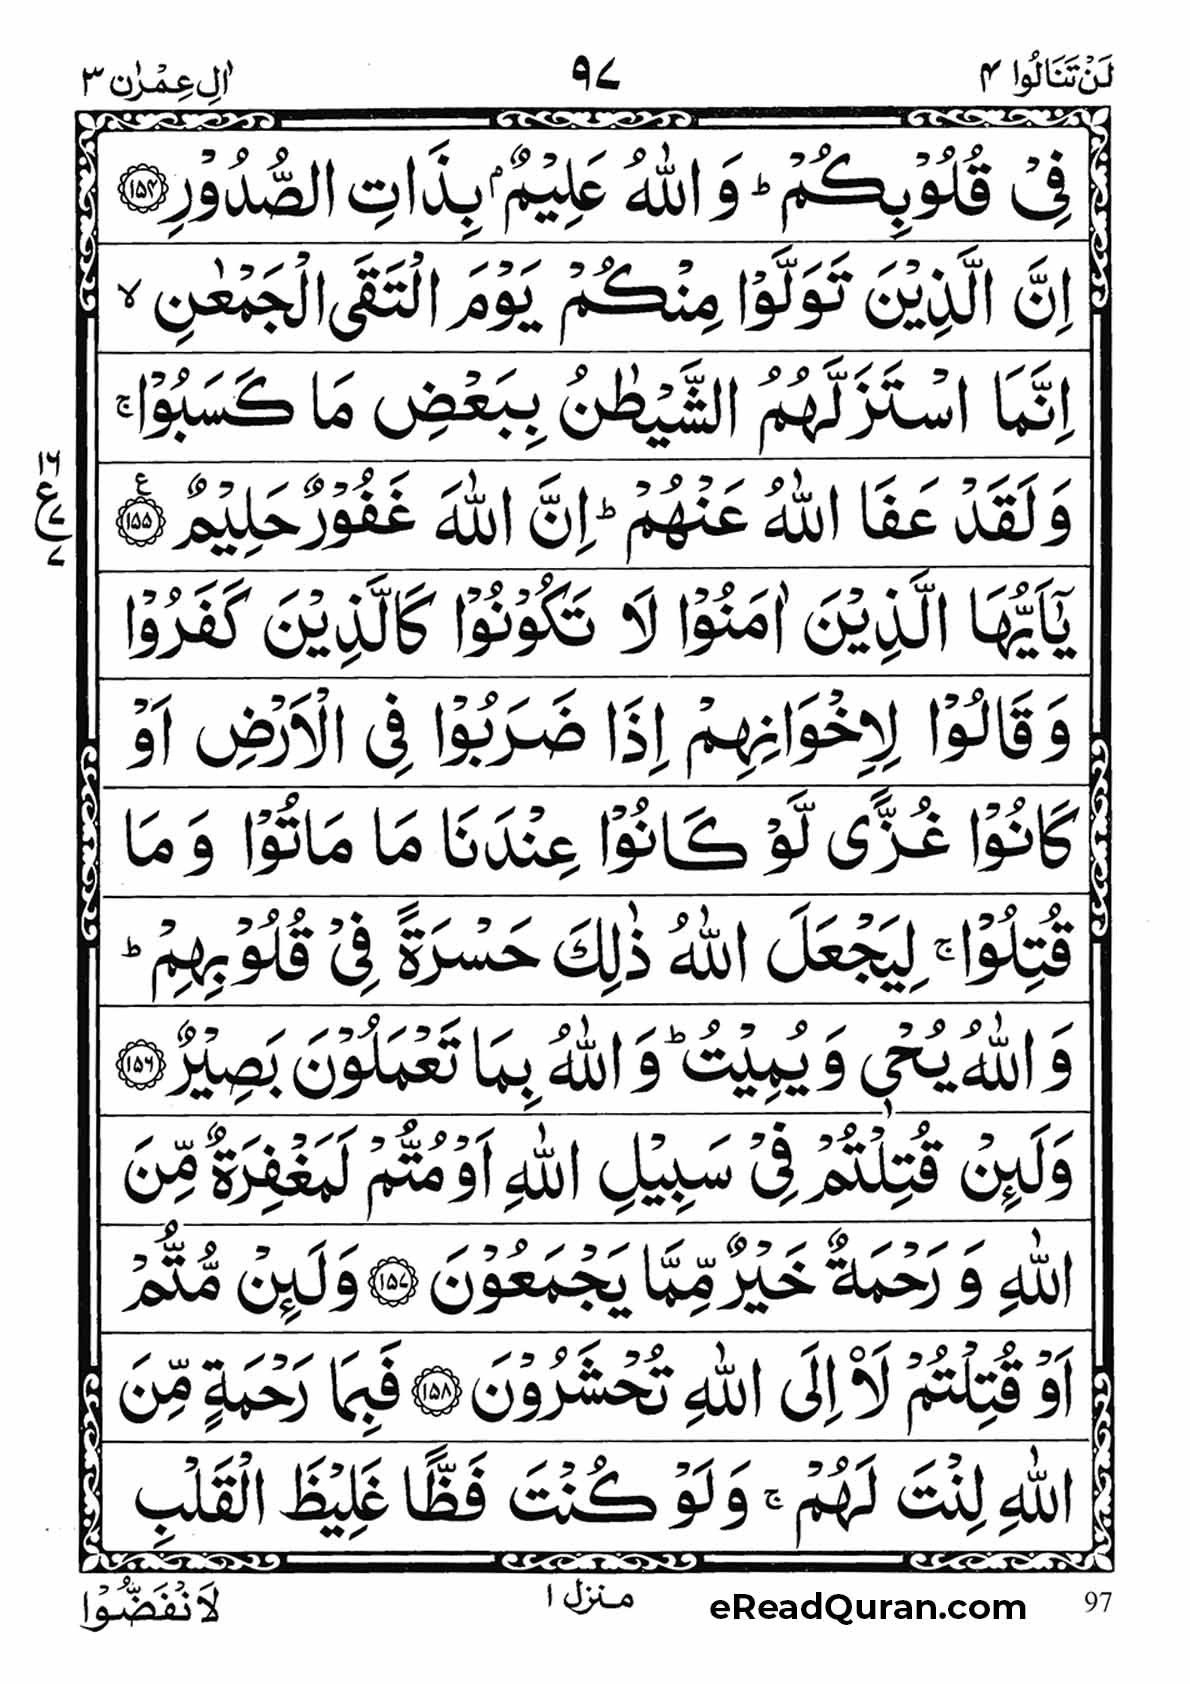 لَنْ تَنَالُوا ۴ ۹۷ اٰلِ عِمْرٰن ۳
فِیْ قُلُوْبِكُمْ ؕ وَ اللّٰهُ عَلِیْمٌۢ بِذَاتِ الصُّدُوْرِ ۝۱۵۴
اِنَّ الَّذِیْنَ تَوَلَّوْا مِنْكُمْ یَوْمَ الْتَقَی الْجَمْعٰنِ ۙ
اِنَّمَا اسْتَزَلَّهُمُ الشَّیْطٰنُ بِبَعْضِ مَا كَسَبُوْا ۚ
وَ لَقَدْ عَفَا اللّٰهُ عَنْهُمْ ؕ اِنَّ اللّٰهَ غَفُوْرٌ حَلِیْمٌ ۝۱۵۵ ع
۱۶ ع ۷ ۷
یٰۤاَیُّهَا الَّذِیْنَ اٰمَنُوْا لَا تَكُوْنُوْا كَالَّذِیْنَ كَفَرُوْا
وَ قَالُوْا لِاِخْوَانِهِمْ اِذَا ضَرَبُوْا فِی الْاَرْضِ اَوْ
كَانُوْا غُزًّی لَّوْ كَانُوْا عِنْدَنَا مَا مَاتُوْا وَ مَا
قُتِلُوْا ۚ لِیَجْعَلَ اللّٰهُ ذٰلِكَ حَسْرَةً فِیْ قُلُوْبِهِمْ ؕ
وَ اللّٰهُ یُحْیٖ وَ یُمِیْتُ ؕ وَ اللّٰهُ بِمَا تَعْمَلُوْنَ بَصِیْرٌ ۝۱۵۶
وَ لَىِٕنْ قُتِلْتُمْ فِیْ سَبِیْلِ اللّٰهِ اَوْ مُتُّمْ لَمَغْفِرَةٌ مِّنَ
اللّٰهِ وَ رَحْمَةٌ خَیْرٌ مِّمَّا یَجْمَعُوْنَ ۝۱۵۷ وَ لَىِٕنْ مُّتُّمْ
اَوْ قُتِلْتُمْ لَاۡاِلَی اللّٰهِ تُحْشَرُوْنَ ۝۱۵۸ فَبِمَا رَحْمَةٍ مِّنَ
اللّٰهِ لِنْتَ لَهُمْ ۚ وَ لَوْ كُنْتَ فَظًّا غَلِیْظَ الْقَلْبِ
97 eReadQuran.com منزل ۱ لَا نْفَضُّوْا